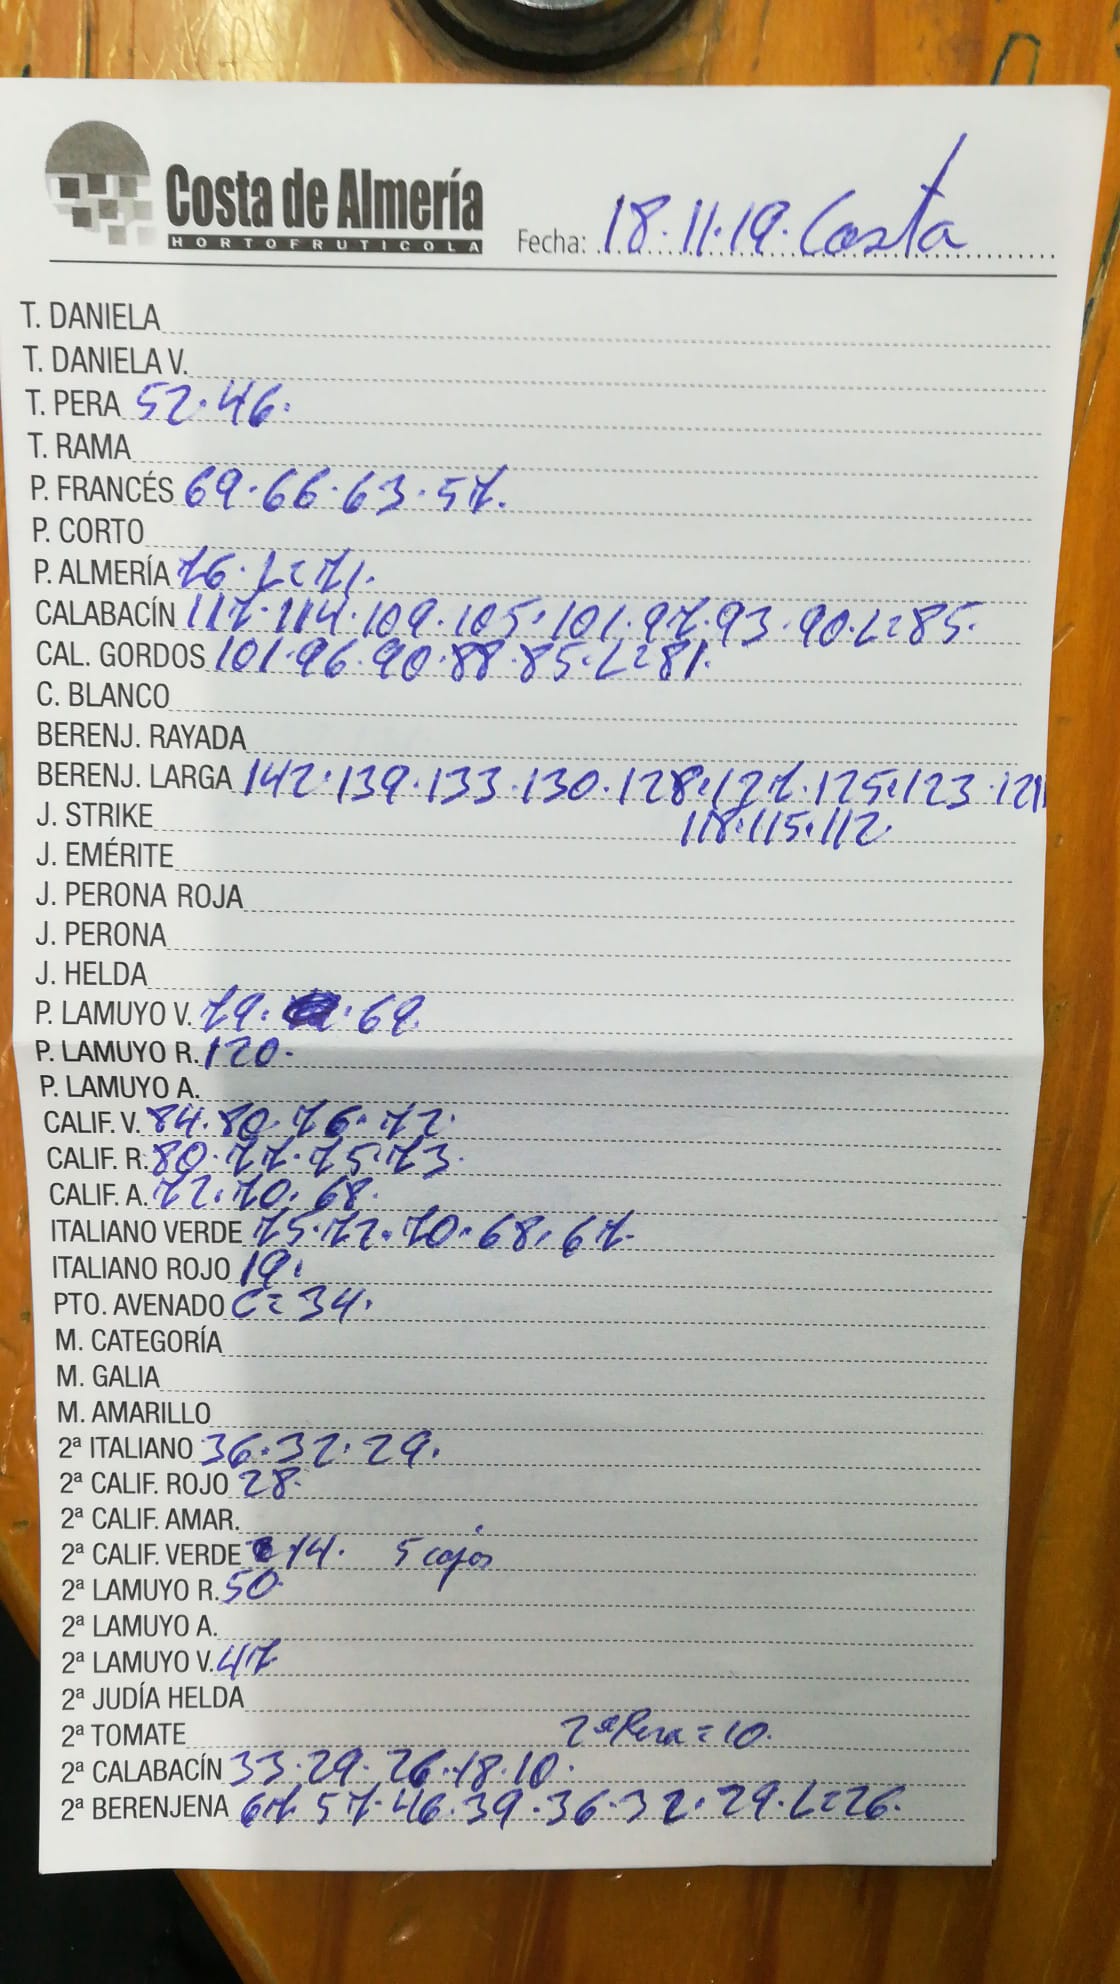 Costa de Almería
HORTOFRUTICOLA
Fecha: 18.11.19. Costa
T. DANIELA
T. DANIELA V.
T. PERA 52.46.
T. RAMA
P. FRANCÉS 69.66.63.57.
P. CORTO
P. ALMERÍA 76. L=71.
CALABACÍN 117.114.109.105.101.97.93.90.L=85.
CAL. GORDOS 101.96.90.88.85.L=81.
C. BLANCO
BERENJ. RAYADA
BERENJ. LARGA 142.139.133.130.128.127.125.123.121
J. STRIKE 118.115.112.
J. EMÉRITE
J. PERONA ROJA
J. PERONA
J. HELDA
P. LAMUYO V. 79. 69.
P. LAMUYO R. 120.
P. LAMUYO A.
CALIF. V. 84.80.76.72.
CALIF. R. 80.77.75.73.
CALIF. A. 72.70.68.
ITALIANO VERDE 75.72.70.68.67.
ITALIANO ROJO 19.
PTO. AVENADO C=34.
M. CATEGORÍA
M. GALIA
M. AMARILLO
2ª ITALIANO 36.32.29.
2ª CALIF. ROJO 28.
2ª CALIF. AMAR.
2ª CALIF. VERDE 14. 5 cajas
2ª LAMUYO R. 50.
2ª LAMUYO A.
2ª LAMUYO V. 47
2ª JUDÍA HELDA
2ª TOMATE 2ª Pera = 10.
2ª CALABACÍN 33.29.26.18.10.
2ª BERENJENA 67.57.46.39.36.32.29.L=26.